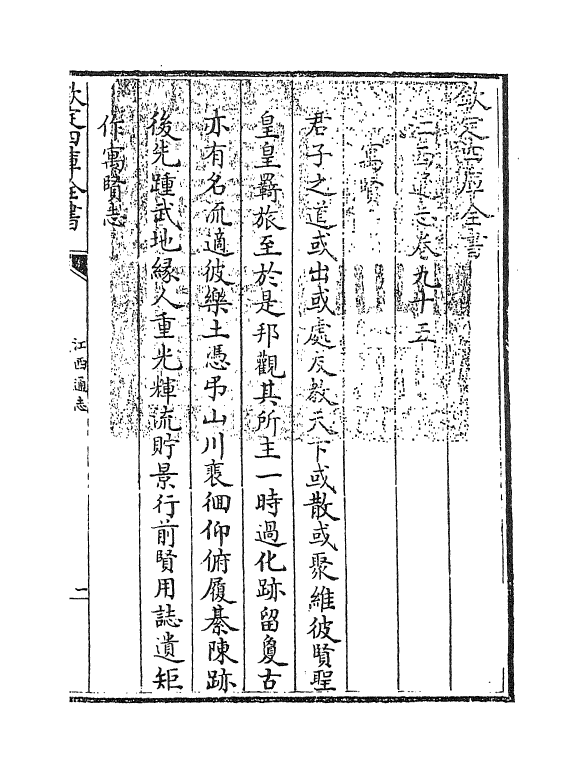 欽定四庫全書
江西通志卷九十五
寓賢
君子之道或出或處友教天下或散或聚維彼賢聖
皇皇羇旅至於是邦觀其所主一時過化跡留夐古
亦有名流適彼樂土憑弔山川裵徊仰俯履綦陳跡
後先踵武地緣人重光輝流貯景行前賢用誌遺矩
作寓賢志
欽定四庫全書
江西通志